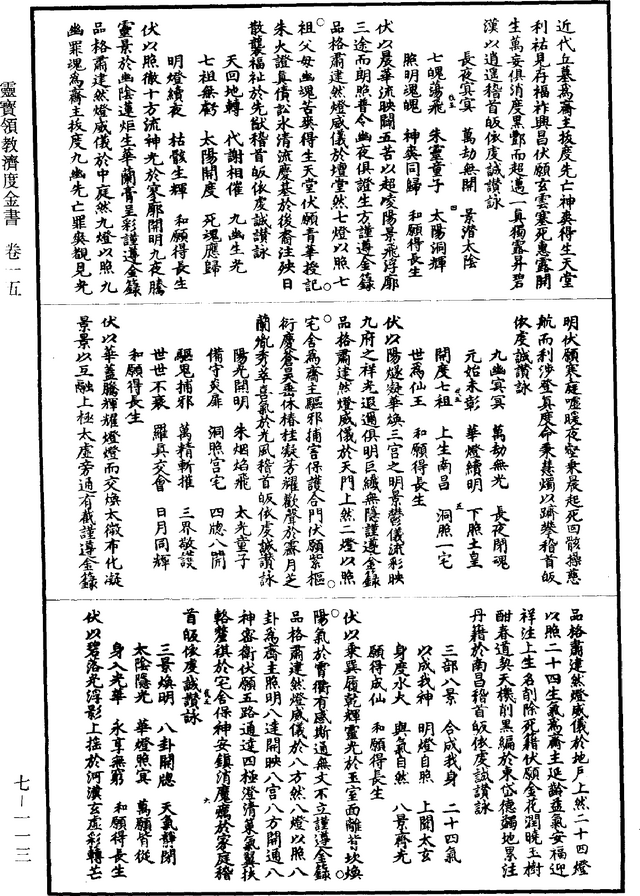 近代丘墓為齋主拔度先亡神爽得生天堂
利祐見存福祚興昌伏願玄雲寒死惠露開
生萬妄俱消度黑酆而超邁一真獨露昇碧
漢以逍遥稽首皈依虔誠讃詠
長夜冥冥　萬劫無開　景潛太陰
七魄蕩飛　朱靈童子　太陽洞輝
照明魂魄　神爽同歸　和願得長生
伏以晨華流映闢五苦以超崚陽景飛浮廓
三途而朗照普令幽夜俱證生方謹遵金籙
品格肅建然燈威儀於壇堂然七燈以照七
祖父母幽魂苦爽得生天堂伏願青華授記
朱火證真債訟永清流慶基於後裔注殃日
散襲福祉於先猷稽首皈依虔誠讃詠
天回地轉　代謝相催　九幽生光
七祖無虧　太陽開度　死魂應歸
明燈續夜　枯骸生輝　和願得長生
伏以照徹十方流神光於寥廓開明九夜騰
靈景於幽陰蓮炬生華蘭膏呈彩謹遵金籙
品格肅建然燈威儀於中庭然九燈以照九
幽罪魂為齋主拔度九幽先亡罪爽覩見光
明伏願寒庭噓暖夜壑乘晨起死回骸操慈
航而利涉登真度命乘慧燭以躋攀稽首皈
依虔誠讃詠
九幽冥冥　萬劫無光　長夜閉魂
元始未彰　華燈續明　下照土皇
開度七祖　上生南昌　洞照一宅
世為仙王　和願得長生
伏以陽燧凝華煥三宫之明景欝儀流彩映
九府之祥光遐邇俱明巨纖無隱謹遵金籙
品格肅建然燈威儀於天門上然二燈以照
宅舍為齋主驅邪捕害保護合門伏願紫樞
衍慶蒼昊垂休椿桂凝芳耀歡聲於霽月芝
蘭毓秀萃喜氣於光風稽首皈依虔誠讃詠
陽光開明　朱烟焰飛　太光童子
備守炎扉　洞照宫宅　四牕八開
驅鬼捕邪　萬精斬摧　三界敬護
世世不衰　羅真交會　日月同輝
和願得長生
伏以華蓋騰輝耀燈燈而交煥太微布化凝
景景以互融上極太虛旁通有截謹遵金籙
品格肅建然燈威儀於地户上然二十四燈
以照二十四生氣為齋主延齡益氣安福迎
祥注上生名削除死籍伏願金花潤曉玉樹
酣春道契天機削黑編於東岱德蠲地累注
丹籍於南昌稽首皈依虔誠讃詠
三部八景　合成我身　二十四氣
以成我神　明燈自照　上開太玄
身度水火　與氣自然　八景齊光
願得成仙　和願得長生
伏以乘巽履乾輝靈光於玉室面離背坎煥
陽氣於霄衢有感斯通無文不立謹遵金籙
品格肅建然燈威儀於八方然八燈以照八
卦為齋主照明八達開映八宫八方開通八
神密衛伏願五路通達四極澄清乘氣翼扶
輅釐祺於宅舍保神安鎮消魔癘於家庭稽
首皈依虔誠讃詠
三景煥明　八卦開牕　天氣辭閉
太陰隱光　華燈照冥　萬願皆從
身入光華　永享無窮　和願得長生
伏以碧落光浮影上摇於河漢玄虛彩轉芒
靈寶領教濟度金書　卷一五
七—一一三